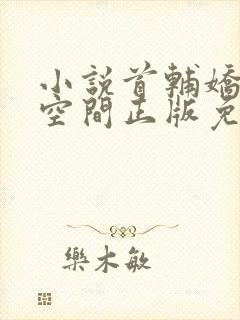 小説首輔嬌
空間正版免
樂木敏